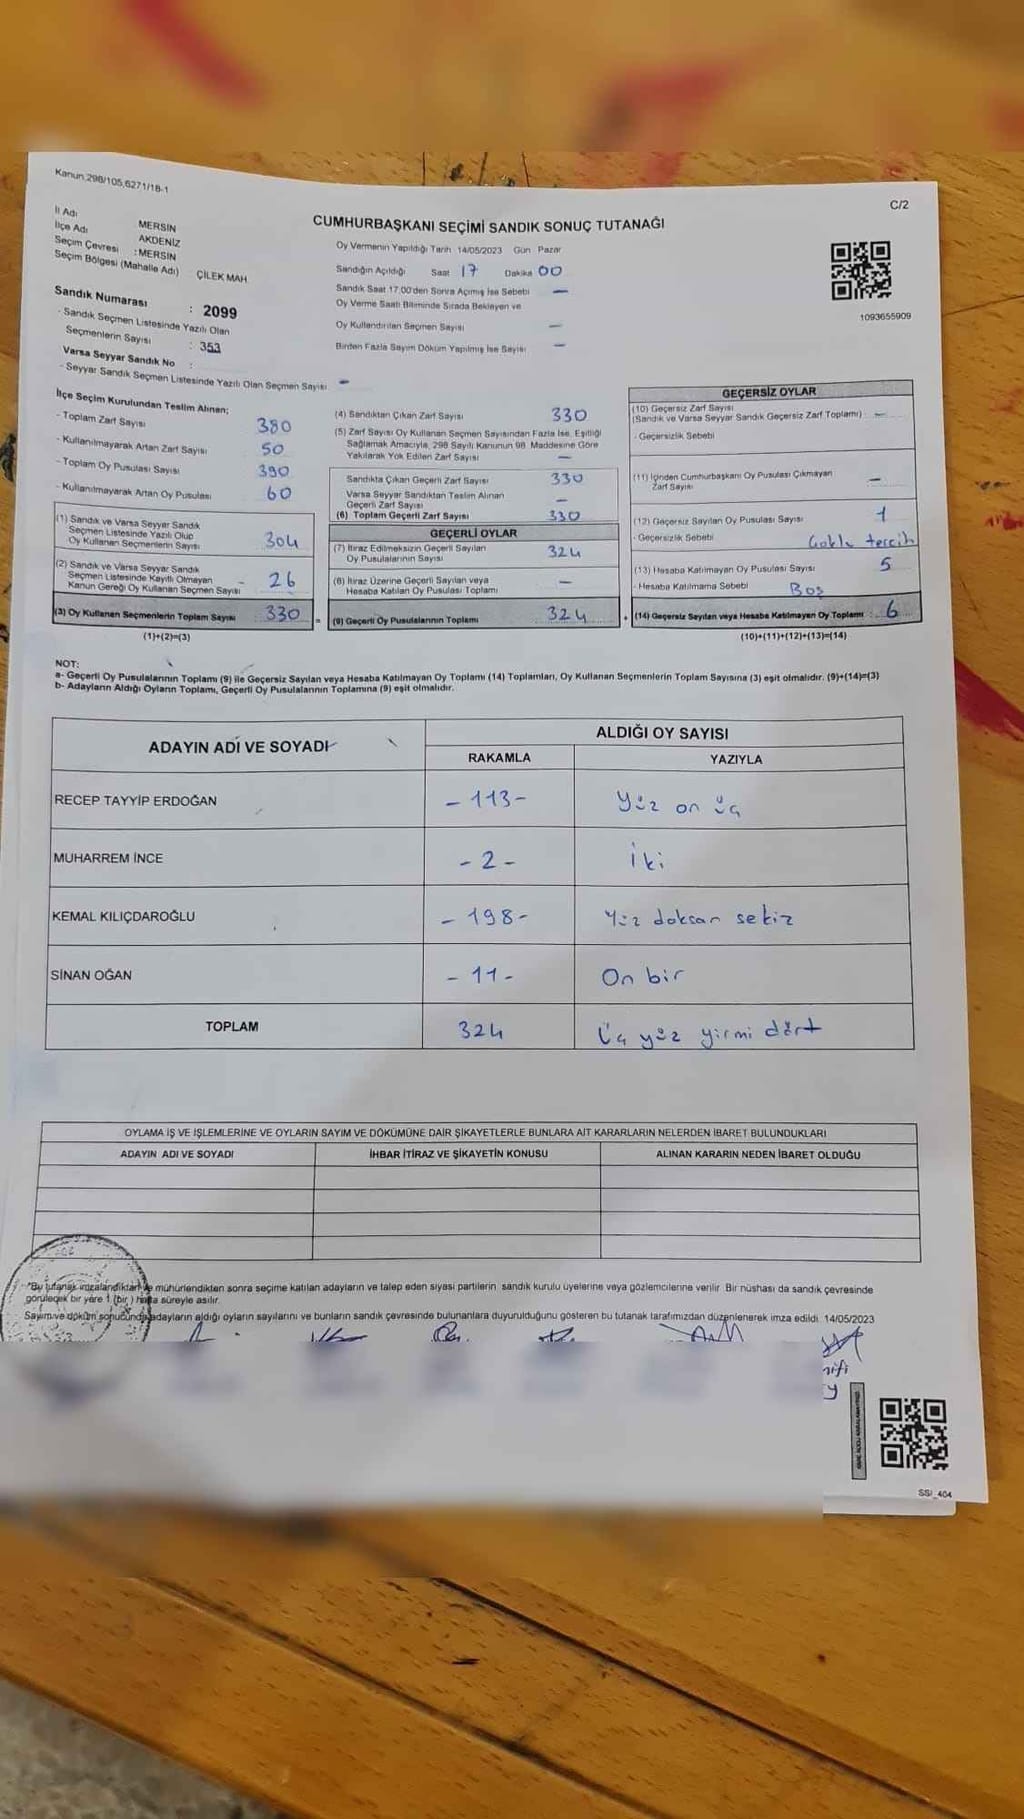 Kanun,298/105,6271/18-1
C/2
CUMHURBAŞKANI SEÇİMİ SANDIK SONUÇ TUTANAĞI
İl Adı MERSİN
İlçe Adı AKDENİZ
Seçim Çevresi :MERSİN
Seçim Bölgesi (Mahalle Adı) ÇİLEK MAH
Sandık Numarası : 2099
- Sandık Seçmen Listesinde Yazılı Olan
Seçmenlerin Sayısı : 353
Varsa Seyyar Sandık No :
- Seyyar Sandık Seçmen Listesinde Yazılı Olan Seçmen Sayısı -
Oy Vermenin Yapıldığı Tarih 14/05/2023 Gün Pazar
Sandığın Açıldığı Saat 17 Dakika 00
Sandık Saat 17.00'den Sonra Açımış İse Sebebi -
Oy Verme Saati Bitiminde Sırada Bekleyen ve
Oy Kullandırılan Seçmen Sayısı -
Birden Fazla Sayım Döküm Yapılmış İse Sayısı -
1093655909
İlçe Seçim Kurulundan Teslim Alınan;
- Toplam Zarf Sayısı 380
- Kullanılmayarak Artan Zarf Sayısı 50
- Toplam Oy Pusulası Sayısı 390
- Kullanılmayarak Artan Oy Pusulası 60
(1) Sandık ve Varsa Seyyar Sandık
Seçmen Listesinde Yazılı Olup
Oy Kullanan Seçmenlerin Sayısı 304
(2) Sandık ve Varsa Seyyar Sandık
Seçmen Listesinde Kayıtlı Olmayan
Kanun Gereği Oy Kullanan Seçmen Sayısı - 26
(3) Oy Kullanan Seçmenlerin Toplam Sayısı 330 =
(1)+(2)=(3)
(4) Sandıktan Çıkan Zarf Sayısı 330
(5) Zarf Sayısı Oy Kullanan Seçmen Sayısından Fazla İse, Eşitliği
Sağlamak Amacıyla, 298 Sayılı Kanunun 98. Maddesine Göre
Yakılarak Yok Edilen Zarf Sayısı -
Sandıkta Çıkan Geçerli Zarf Sayısı 330
Varsa Seyyar Sandıktan Teslim Alınan
Geçerli Zarf Sayısı -
(6) Toplam Geçerli Zarf Sayısı 330
GEÇERLİ OYLAR
(7) İtiraz Edilmeksizin Geçerli Sayılan
Oy Pusulalarının Sayısı 324
(8) İtiraz Üzerine Geçerli Sayılan veya
Hesaba Katılan Oy Pusulası Toplamı -
(9) Geçerli Oy Pusulalarının Toplamı 324 +
GEÇERSİZ OYLAR
(10) Geçersiz Zarf Sayısı
(Sandık ve Varsa Seyyar Sandık Geçersiz Zarf Toplamı) -
- Geçersizlik Sebebi
(11) İçinden Cumhurbaşkanı Oy Pusulası Çıkmayan
Zarf Sayısı -
(12) Geçersiz Sayılan Oy Pusulası Sayısı 1
- Geçersizlik Sebebi Çoklu tercih
(13) Hesaba Katılmayan Oy Pusulası Sayısı 5
- Hesaba Katılmama Sebebi Boş
(14) Geçersiz Sayılan veya Hesaba Katılmayan Oy Toplamı 6
(10)+(11)+(12)+(13)=(14)
NOT:
a- Geçerli Oy Pusulalarının Toplamı (9) ile Geçersiz Sayılan veya Hesaba Katılmayan Oy Toplamı (14) Toplamları, Oy Kullanan Seçmenlerin Toplam Sayısına (3) eşit olmalıdır. (9)+(14)=(3)
b- Adayların Aldığı Oyların Toplamı, Geçerli Oy Pusulalarının Toplamına (9) eşit olmalıdır.
ADAYIN ADI VE SOYADI
ALDIĞI OY SAYISI
RAKAMLA YAZIYLA
RECEP TAYYİP ERDOĞAN - 113 - Yüz on üç
MUHARREM İNCE - 2 - İki
KEMAL KILIÇDAROĞLU - 198 - Yüz doksan sekiz
SİNAN OĞAN - 11 - On bir
TOPLAM 324 Üç yüz yirmi dört
OYLAMA İŞ VE İŞLEMLERİNE VE OYLARIN SAYIM VE DÖKÜMÜNE DAİR ŞİKAYETLERLE BUNLARA AİT KARARLARIN NELERDEN İBARET BULUNDUKLARI
ADAYIN ADI VE SOYADI İHBAR İTİRAZ VE ŞİKAYETİN KONUSU ALINAN KARARIN NEDEN İBARET OLDUĞU
"Bu tutanak imzalandıktan ve mühürlendikten sonra seçime katılan adayların ve talep eden siyasi partilerin sandık kurulu üyelerine veya gözlemcilerine verilir. Bir nüshası da sandık çevresinde
görülecek bir yere 1 (bir ) hafta süreyle asılır.
Sayım ve döküm sonucunda adayların aldığı oyların sayılarını ve bunların sandık çevresinde bulunanlara duyurulduğunu gösteren bu tutanak tarafımızdan düzenlenerek imza edildi. 14/05/2023
SSI_404